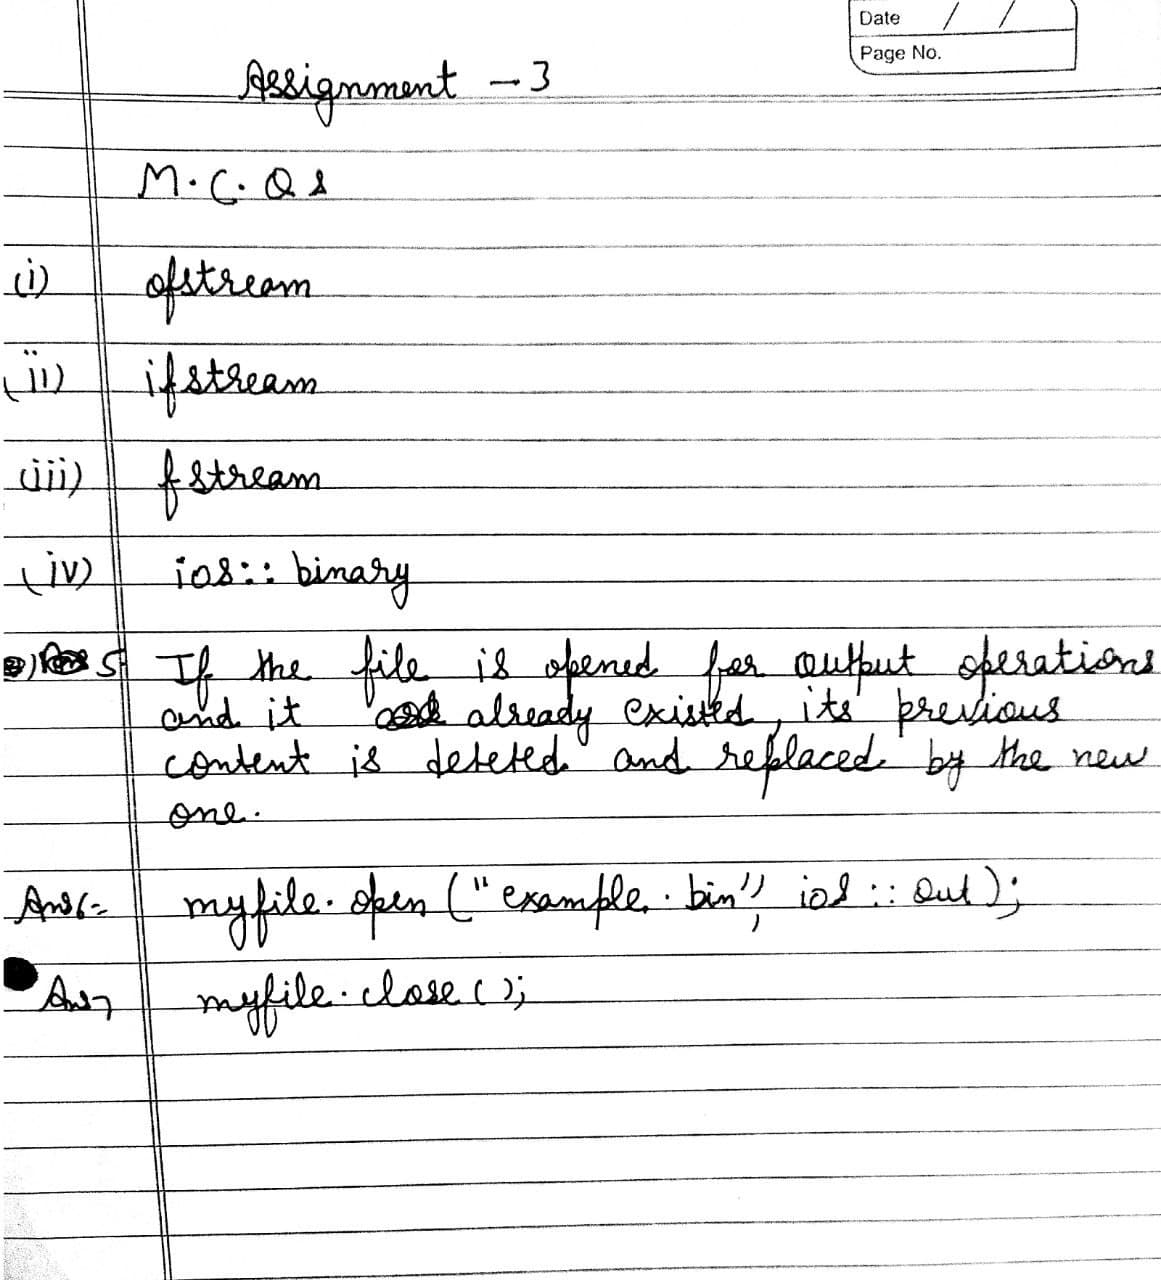 Date / /
Page No.
Assignment - 3
M.C.Qs
(i) ofstream
(ii) ifstream
(iii) fstream
(iv) ios::binary
5 If the file is opened for output operations
and it already existed, its previous
content is deteted and replaced by the new
one.
Ans 6= myfile.open ("example.bin", ios::out);
Ans 7 myfile.close();